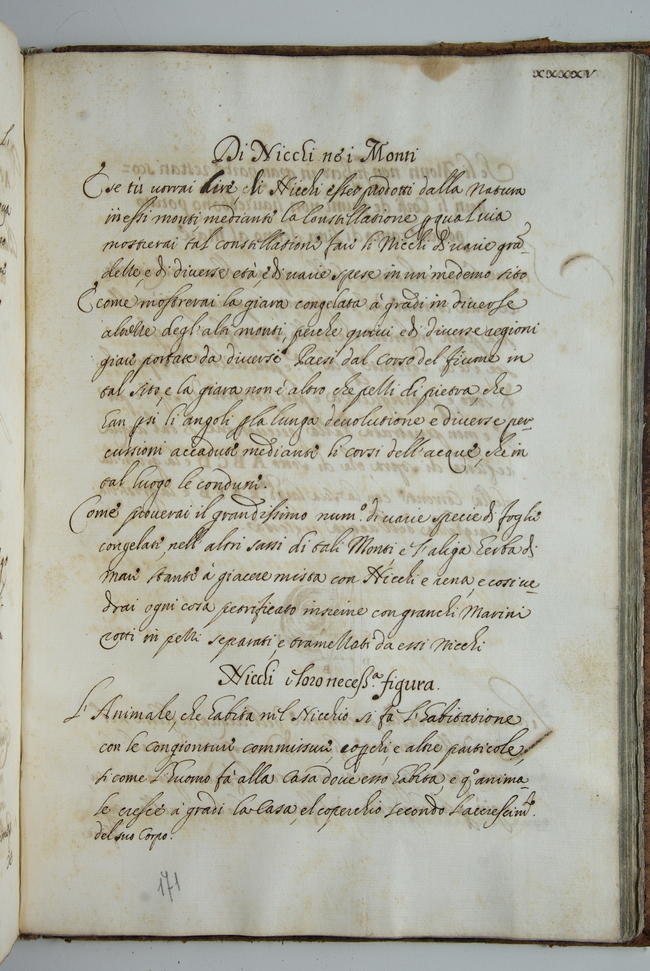 XXXXV
Di Nicchi ne i Monti
E se tù vorrai dire che li Nicchi esser prodotti dalla natura
in essi monti mediante la Constillatione, p qual via
mostrerai tal constillatione fare li Nicchi di varie gran
delle, e di diverse età, e di varie spese in un medemo sito
E come mostrerai la giara congelata à gradi in diverse
altezze degl'altri monti, perche quivi e di diverse regioni
giare portate da diversi Paesi dal corso del fiume in
tal sito, e la giara non è altro che pelli di pietra che
han psi li angoli p la lunga devolutione e diverse per-
cussioni accadute mediante li corsi dell'acque, che in
tal luogo le condure.
Come proverai il grandissimo num.º di varie specie di foglie
congelate nell'altri sassi di tali Monti, e l'aliga herba di
mare stante à giacere mista con Nicchi e rena, e cosi ve-
drai ogni cosa petrificato insieme con granchi Marini
rotti in pelli separati, e tramellati da essi Nicchi
Nicchi e loro necess.ª figura.
L'Animale, che habita nel Nicchio si fà l'habitatione
con le congionture commissure, copchi, e altre particole,
si come l'huomo fà alla Casa dove esso habita, e qº anima-
le cresce à gradi la Casa el coperchio secondo l'accrescimtº.
del suo Corpo.
171